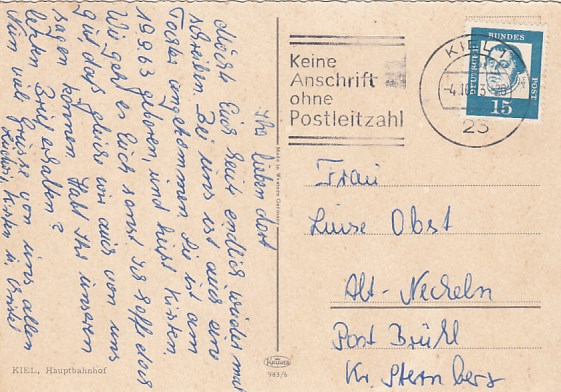 Ihr lieben dort
möcht Euch heut endlich wieder mal
schreiben. Bei uns ist auch eine
Tochter angekommen. Sie ist am
19.9.63 geboren, und heißt Kirsten.
Wie geht es Euch sonst ich hoffe doch
gut das gleiche wir auch von uns
sagen können. Habt Ihr unseren
letzten Brief erhalten?
Nun viele Grüße von uns allen
Kirsten u.
KIEL, Hauptbahnhof
Made in Western Germany
983/6
Keine
Anschrift
ohne
Postleitzahl
KIEL 1
23
DEUTSCHE BUNDESPOST
15
Frau
Luise Obst
Alt-Necheln
Post Brühl
Kr. Sternberg